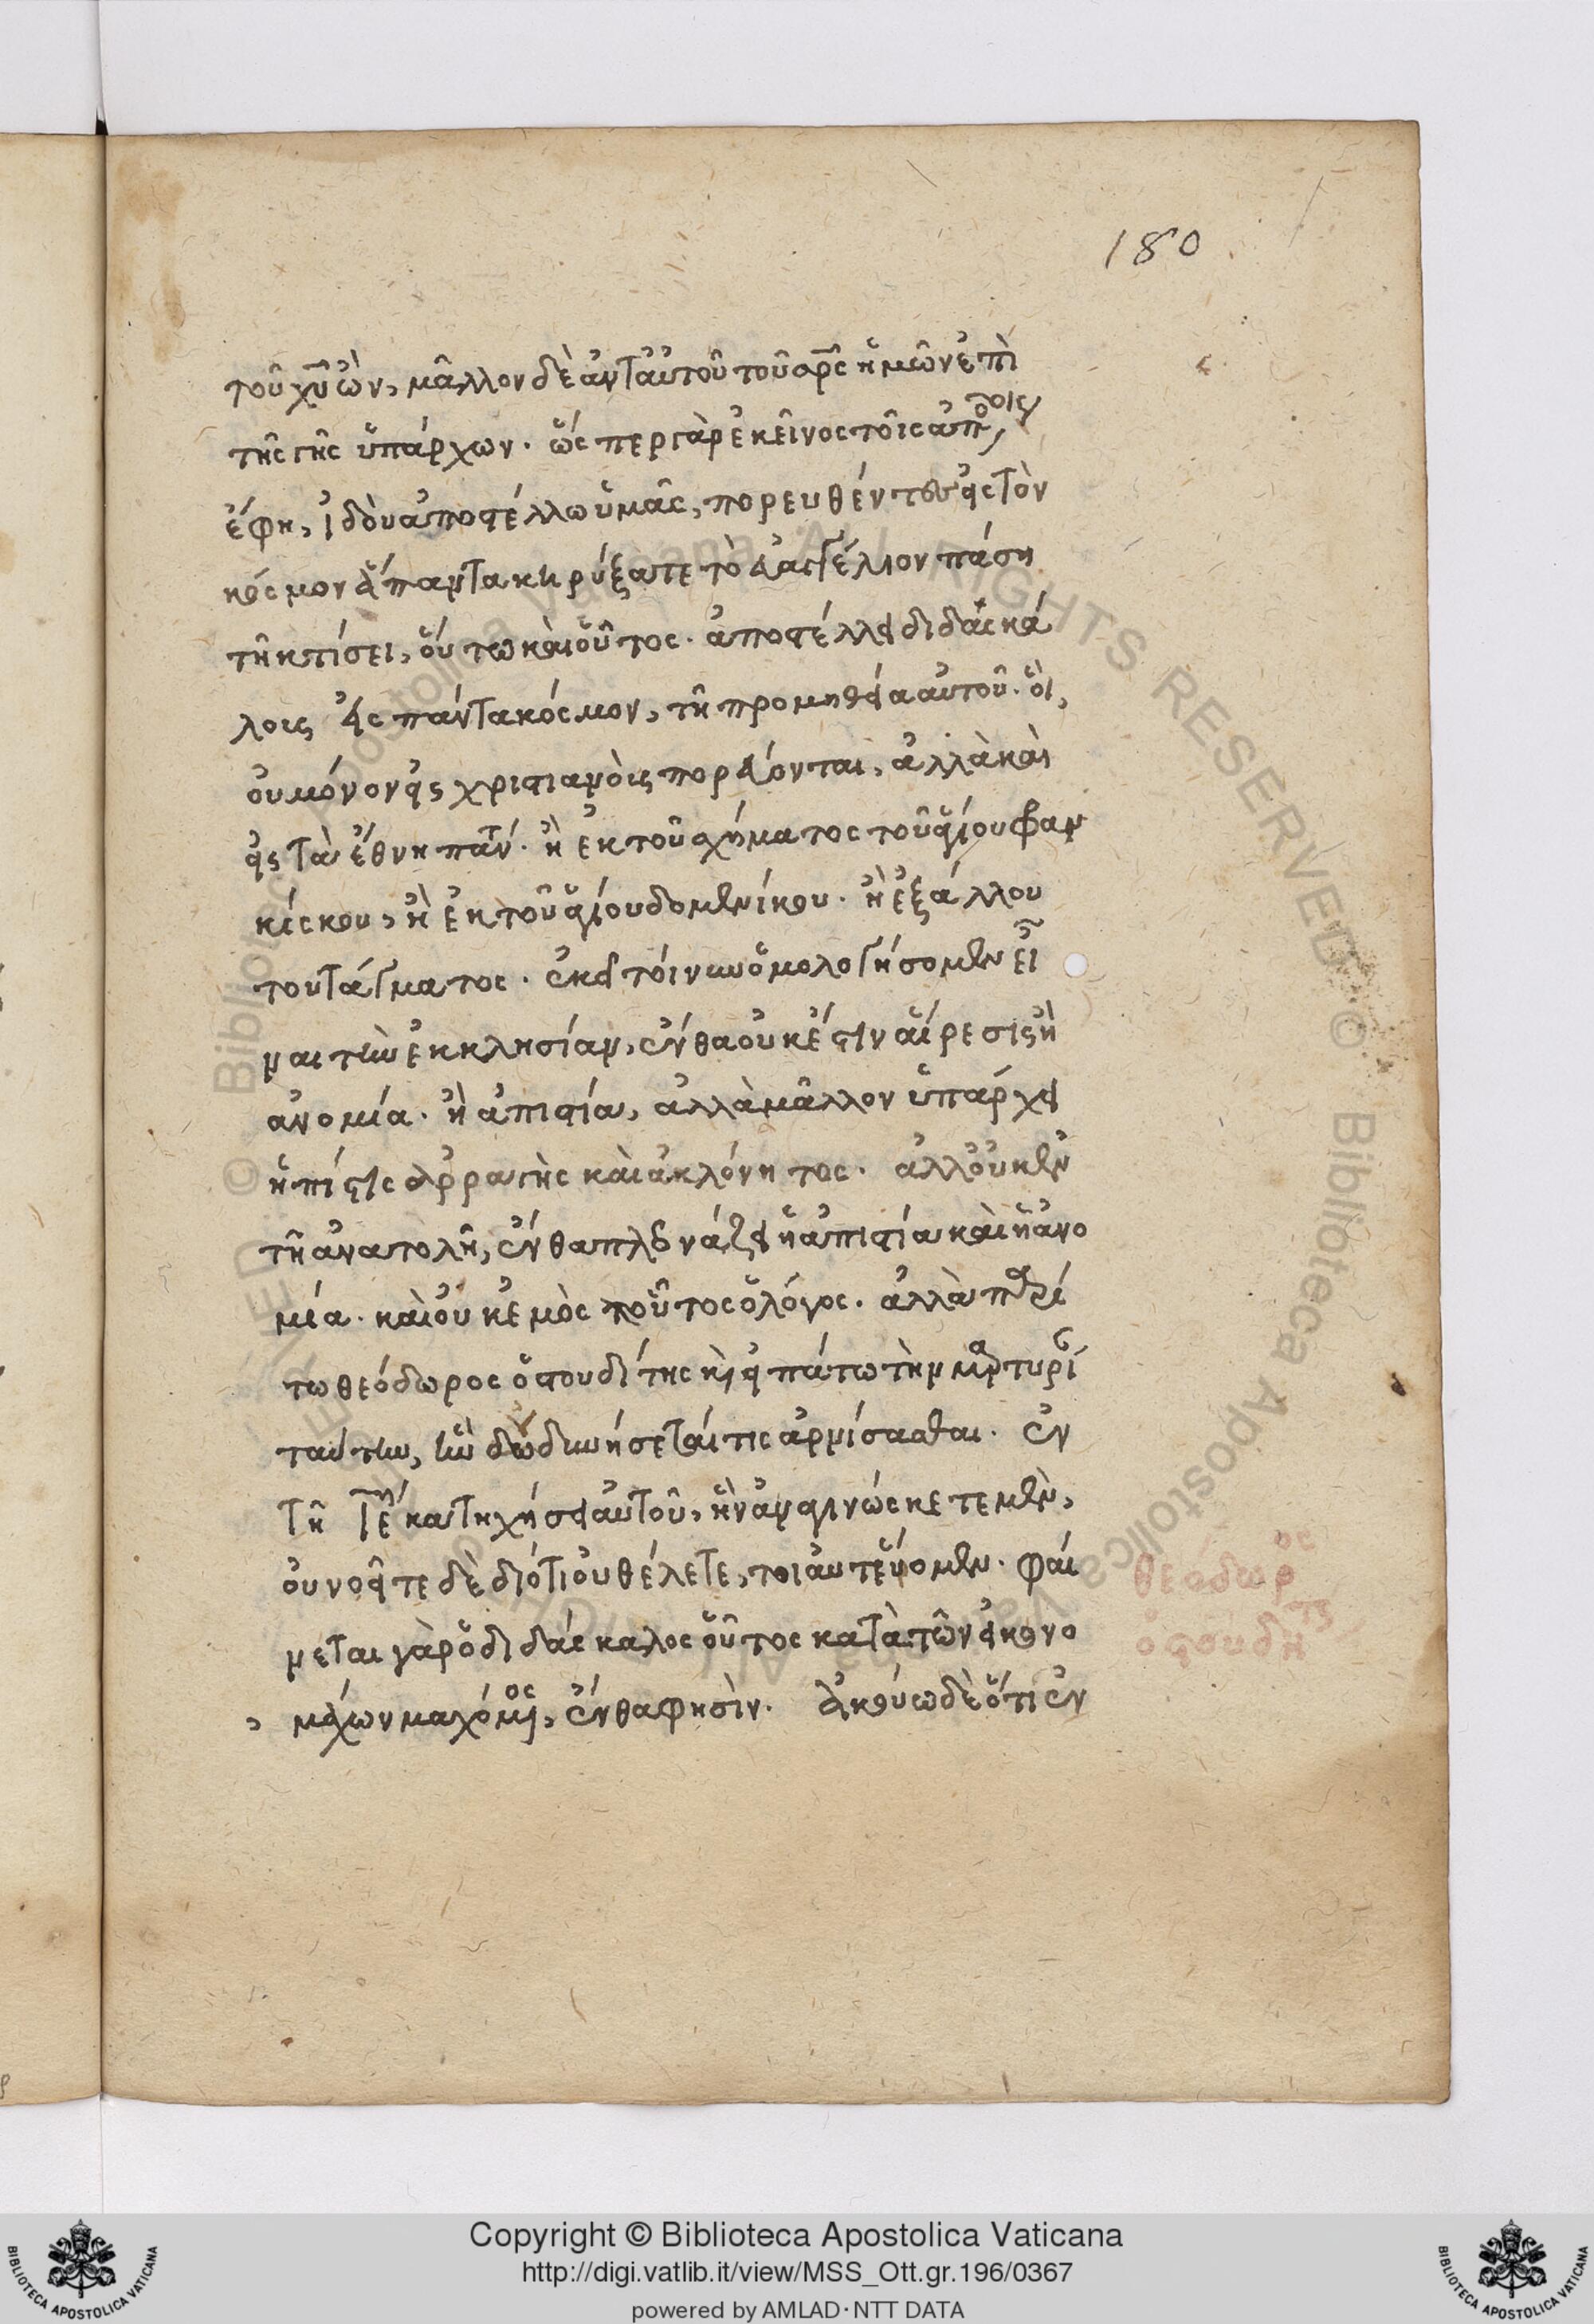 180
τοῦ χυ̅ ὢν, μᾶλλον δὲ ἀντ αὐτοῦ τοῦ πρ̅ς ἡμῶν ἐπὶ
τῆς γῆς ὑπάρχων. ὥς περ γὰρ ἐκεῖνος τοῖς ἀποστόλοις
ἔφη, ἰδοὺ ἀποστέλλω ὑμᾶς, πορευθέντες εἰς τὸν
κόσμον ἅπαντα κηρύξατε τὸ εὐαγγέλιον πάση
τῆ κτίσει, οὕτω καὶ οὗτος. ἀποστέλλει διδασκά
λοις εἰς πάντα κόσμον, τῆ προμηθεία αὐτοῦ. οἳ,
οὐ μόνον εἰς χριστιανοὺς πορεύονται, ἀλλὰ καὶ
εἰς τὰ ἔθνη πάντ. ἢ ἐκ τοῦ σχήματος τοῦ ἁγίου φραν
κίσκου, ἢ ἐκ τοῦ ἁγίου δομενίκου. ἢ ἐξ ἄλλου
του τάγματος. ἐκεῖ τοίνυν ὁμολογήσομεν εἶ
ναι τὴν ἐκκλησίαν, ἔνθα οὐκ ἔστιν αἵρεσις ἢ
ἀνομία. ἢ ἀπιστία, ἀλλὰ μᾶλλον ὑπάρχει
ἡ πίστις ἀρραγὴς καὶ ἀκλόνητος. ἀλλ οὐκ ἐν
τῆ ἀνατολῆ, ἔνθα πλεονάζει ἡ ἀπιστία καὶ ἡ ἀνο
μία. καὶ οὐκ ἐμὸς τοῦτος ὁ λόγος. ἀλλὰ παρί
τω θεόδωρος ὁ στουδίτης κ εἰπάτω τὴν μαρτυρί
ταύτην, ἣν οὐ δυνήσεταί τις ἀρνίσασθαι. ἐν
τῆ γῆ κατηχήσει αὐτοῦ, ἣν ἀναγινώσκετε μὲν,
οὐ νοεῖτε δὲ διότι οὐ θέλετε, τοιαύτην. φαί
νεται γὰρ ὁ διδάσκαλος οὗτος κατὰ τῶν εἰκονο
μάχων μαχόμενος, ἔνθα φησὶν. ἀκούω δὲ ὅτι ἐν
θεόδωρος
ὁ στουδίτης
Copyright © Biblioteca Apostolica Vaticana
http://digi.vatlib.it/view/MSS_Ott.gr.196/0367
powered by AMLAD·NTT DATA